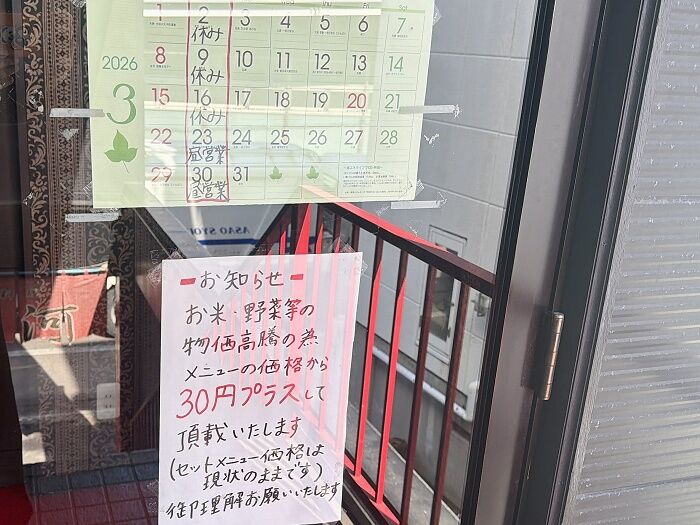 2026
3
1 2 3 4 5 6 7
休み
8 9 10 11 12 13 14
休み
15 16 17 18 19 20 21
休み
22 23 24 25 26 27 28
昼営業
29 30 31
昼営業
ASAO SYO
お知らせ
お米・野菜等の
物価高騰の為
メニューの価格から
30円プラスして
頂戴いたします
(セットメニュー価格は
現状のままです)
御理解お願いいたします